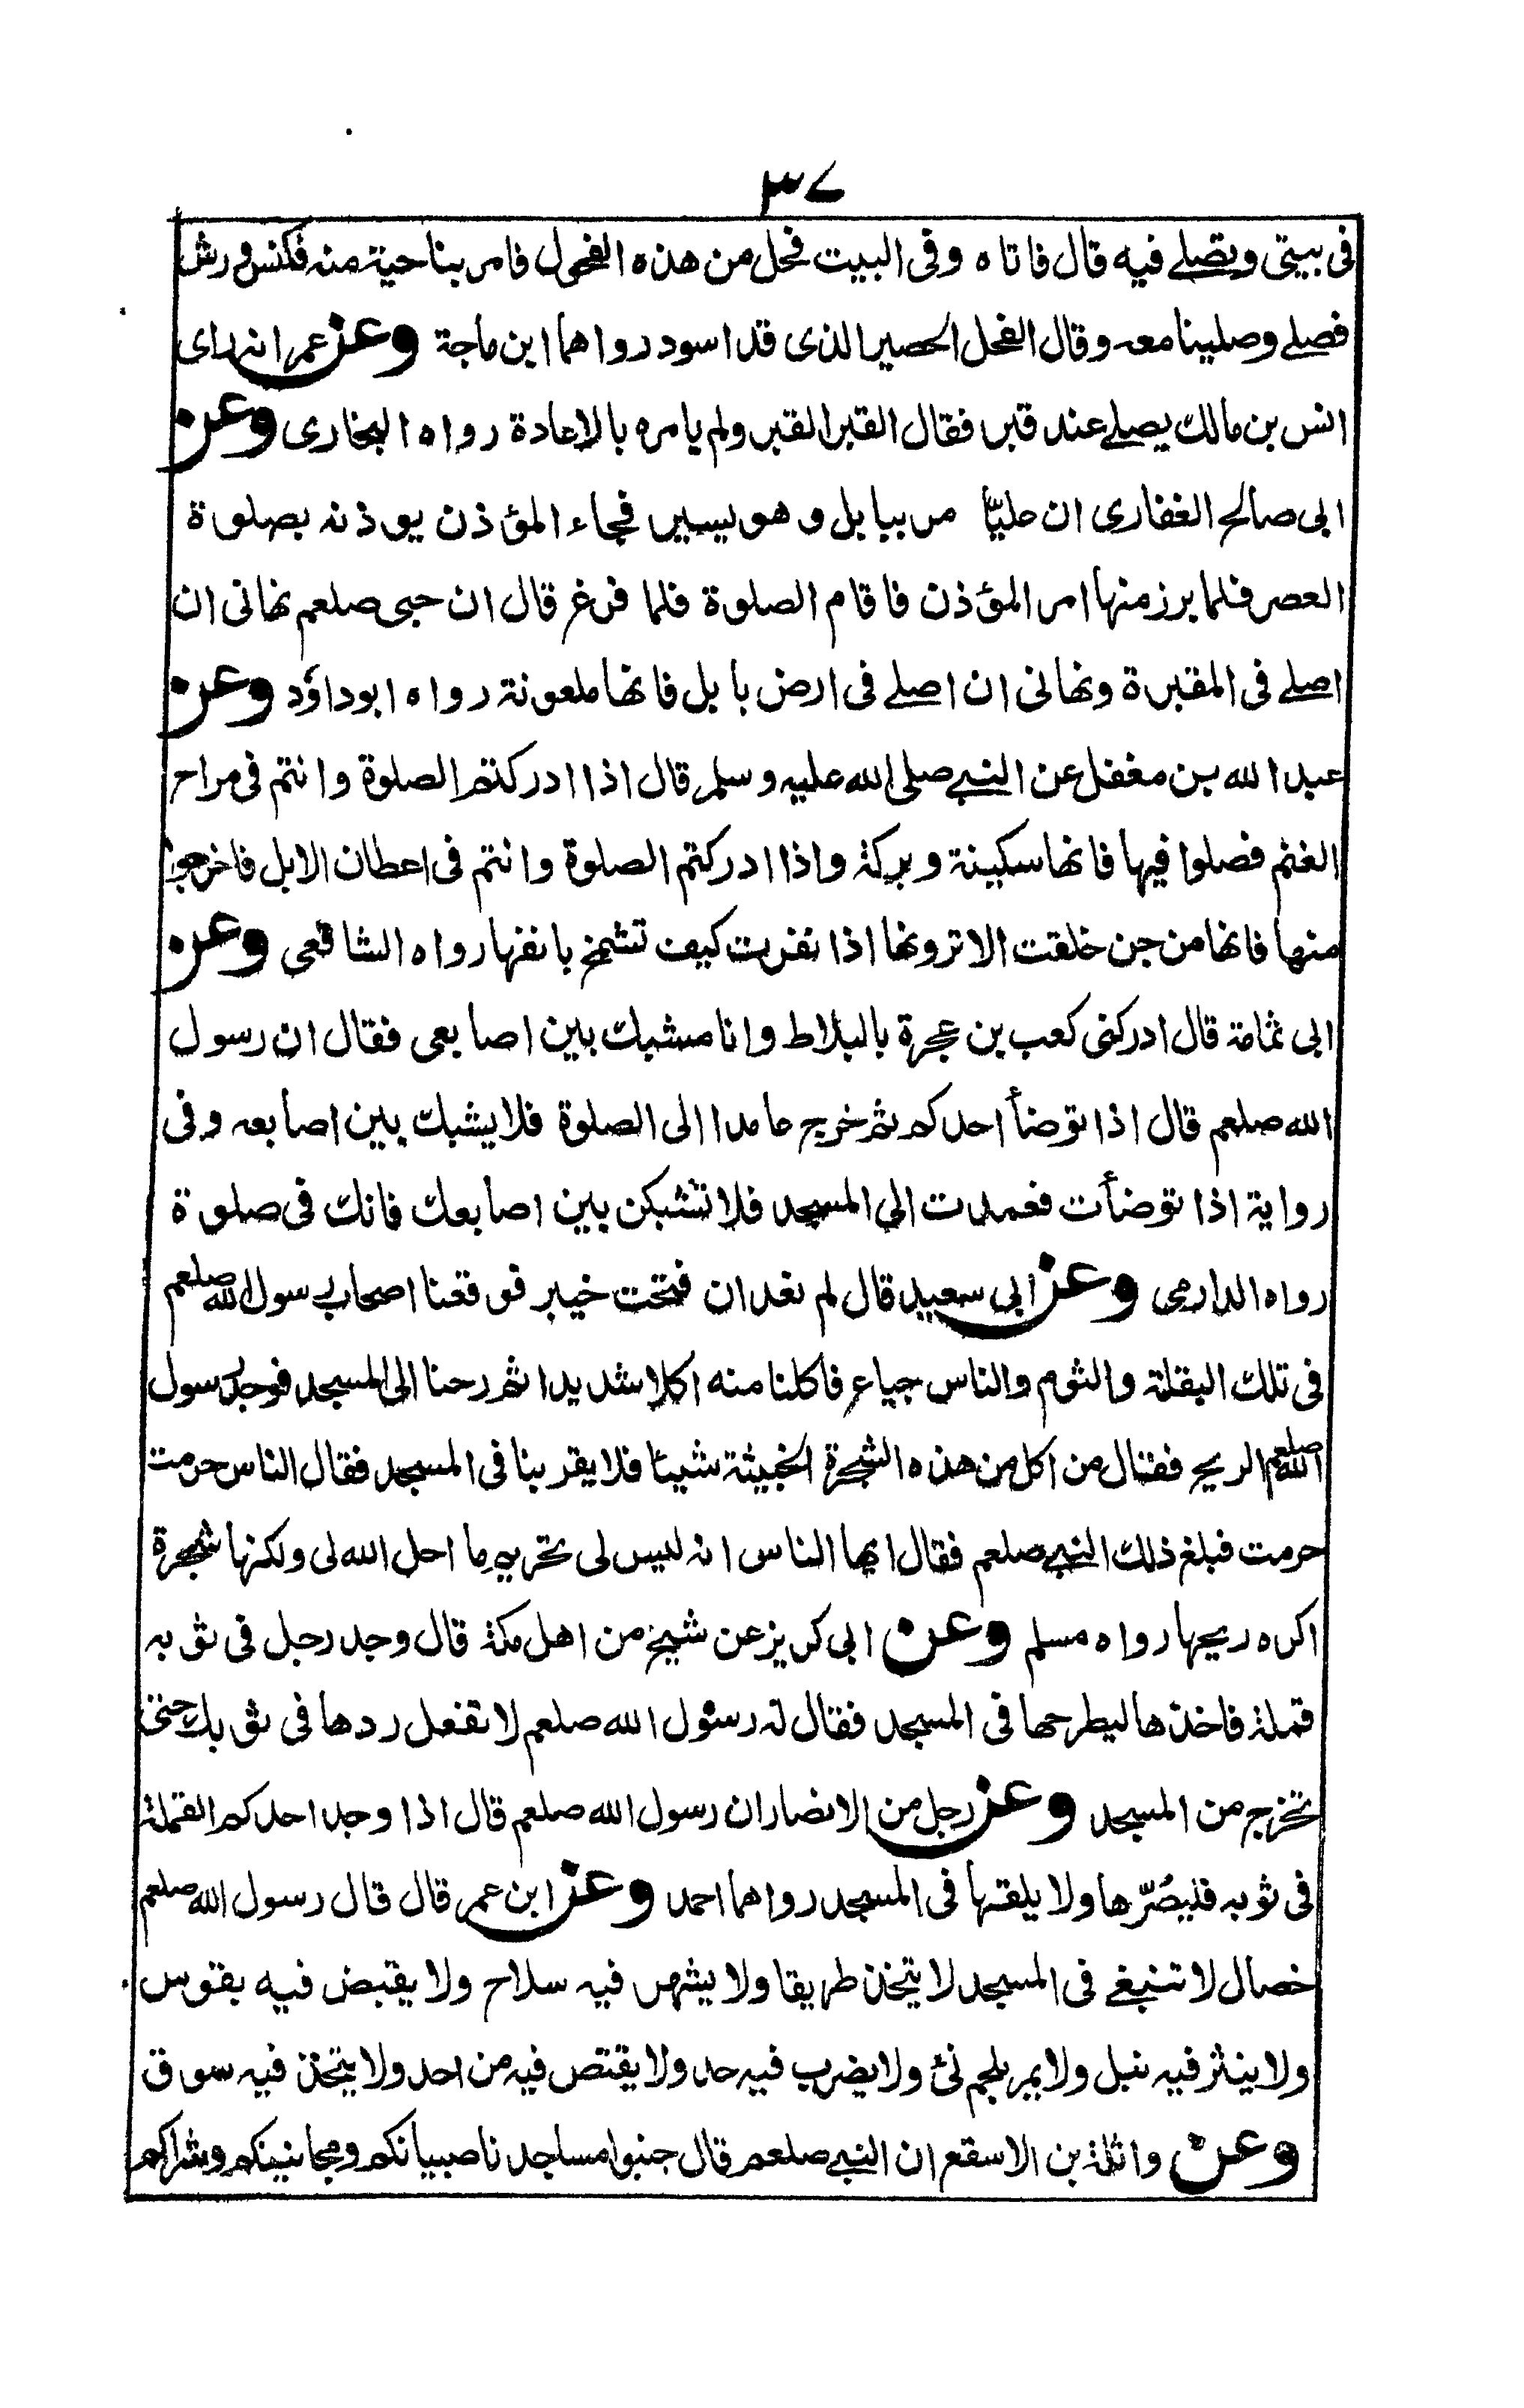 ٣٧
فى بيتى ويصلے فيه قال فاتاه وفى البيت فحل من هذه الفحول فامر بناحية منه فكنس ورش
فصلے وصلينا معه وقال الفحل الحصير الذى قد اسود رواهما ابن ماجة وعن عمر انه راى
انس بن مالك يصلے عند قبر فقال القبر القبر ولم يامره بالاعادة رواه البخارى وعن
ابى صالح الغفارى ان عليّا مر ببابل وهو يسير فجاء المؤذن يوذنه بصلوة
العصر فلما برز منها امر المؤذن فاقام الصلوة فلما فرغ قال ان حبى صلعم نهانى ان
اصلے فى المقبرة ونهانى ان اصلے فى ارض بابل فانها ملعونة رواه ابوداؤد وعن
عبد الله بن مغفل عن النبے صلى الله عليه وسلم قال اذا ادركتم الصلوة وانتم فى مراح
الغنم فصلوا فيها فانها سكينة وبركة واذا ادركتم الصلوة وانتم فى اعطان الابل فاخرجوا
منها فانها من جن خلقت الا ترونها اذا نفرت كيف تشمخ بانفها رواه الشافعى وعن
ابى ثمامة قال ادركنى كعب بن عجرة بالبلاط وانا مشبك بين اصابعى فقال ان رسول
الله صلعم قال اذا توضأ احدكم ثم خرج عامدا الى الصلوة فلا يشبك بين اصابعه وفى
رواية اذا توضأت فعمدت الى المسجد فلا تشبكن بين اصابعك فانك فى صلوة
رواه الدارمى وعن ابى سعيد قال لم نعد ان فتحت خيبر فوقعنا اصحاب رسول الله صلعم
فى تلك البقلة والثوم والناس جياع فاكلنا منه اكلا شديدا ثم رحنا الى المسجد فوجد رسول
الله صلعم الريح فقال من اكل من هذه الشجرة الخبيثة شيئا فلا يقربنا فى المسجد فقال الناس حرمت
حرمت فبلغ ذلك النبے صلعم فقال ايها الناس انه ليس لى تحريم ما احل الله لى ولكنها شجرة
اكره ريحها رواه مسلم وعن ابى كريز عن شيخ من اهل مكة قال وجد رجل فى ثوبه
قملة فاخذها ليطرحها فى المسجد فقال له رسول الله صلعم لا تفعل ردها فى ثوبك حتى
تخرج من المسجد وعن رجل من الانصار ان رسول الله صلعم قال اذا وجد احدكم القملة
فى ثوبه فليصُرّها ولا يلقها فى المسجد رواهما احمد وعن ابن عمر قال قال رسول الله صلعم
خصال لا تنبغے فى المسجد لا يتخذ طريقا ولا يشهر فيه سلاح ولا يقبض فيه بقوس
ولا ينثر فيه نبل ولا يمر بلحم نئ ولا يضرب فيه حد ولا يقتص فيه من احد ولا يتخذ فيه سوق
وعن واثلة بن الاسقع ان النبے صلعم قال جنبوا مساجدنا صبيانكم ومجانينكم وشراكم